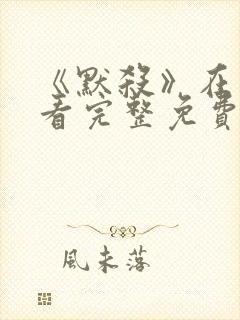 《默殺》在
看完整免費
風未落